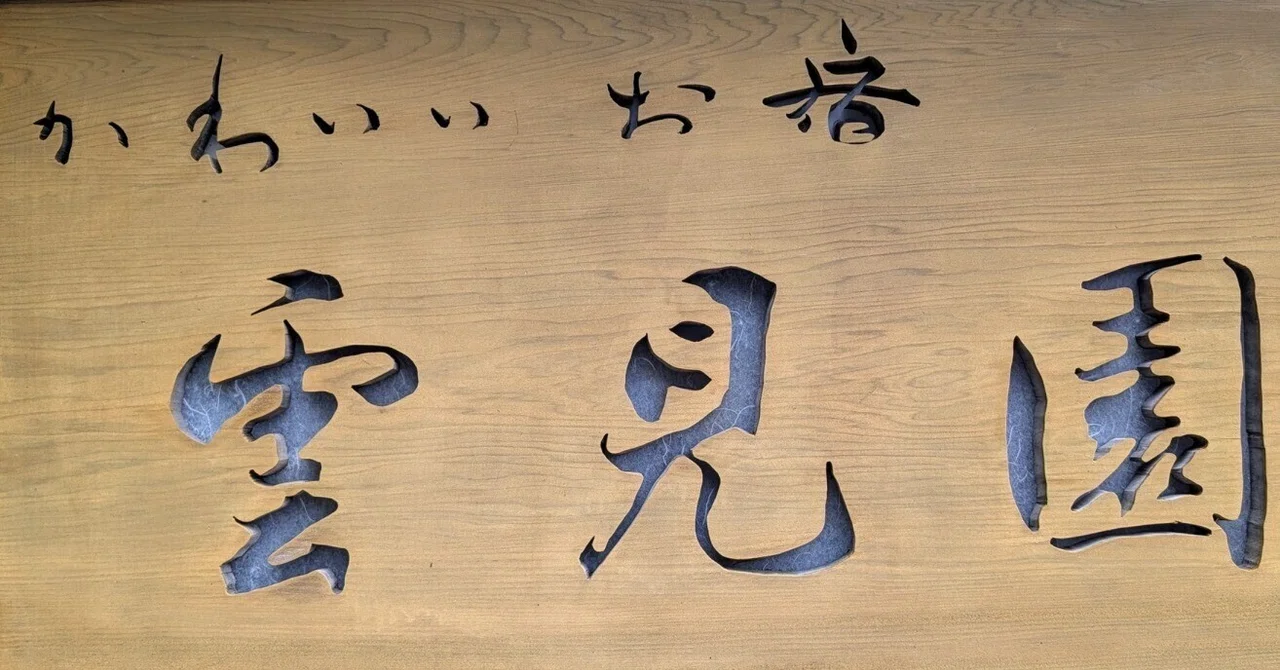 かわいいお宿
雲見園